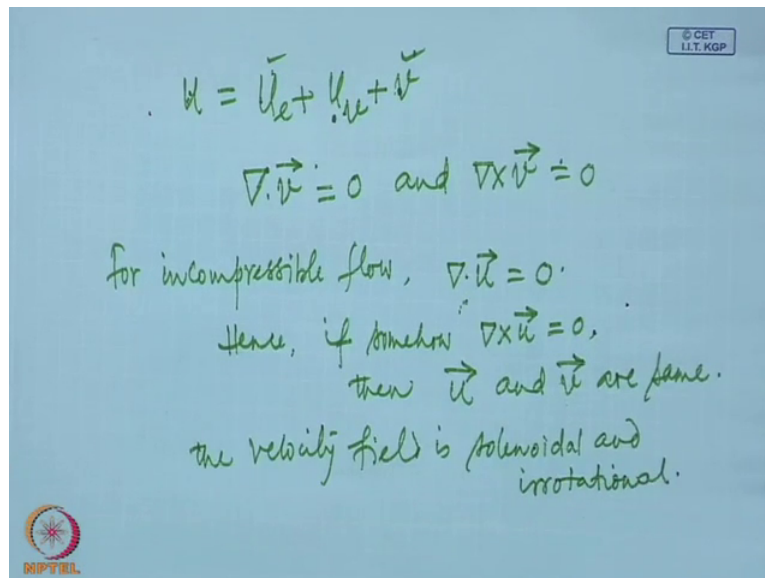 © CET
I.I.T. KGP
u = u_e + u_v + v
∇.v⃗ = 0 and ∇×v⃗ = 0
for incompressible flow, ∇.u⃗ = 0.
Hence, if somehow ∇×u⃗ = 0,
then u⃗ and v⃗ are same.
the velocity field is solenoidal and
irrotational.
NPTEL